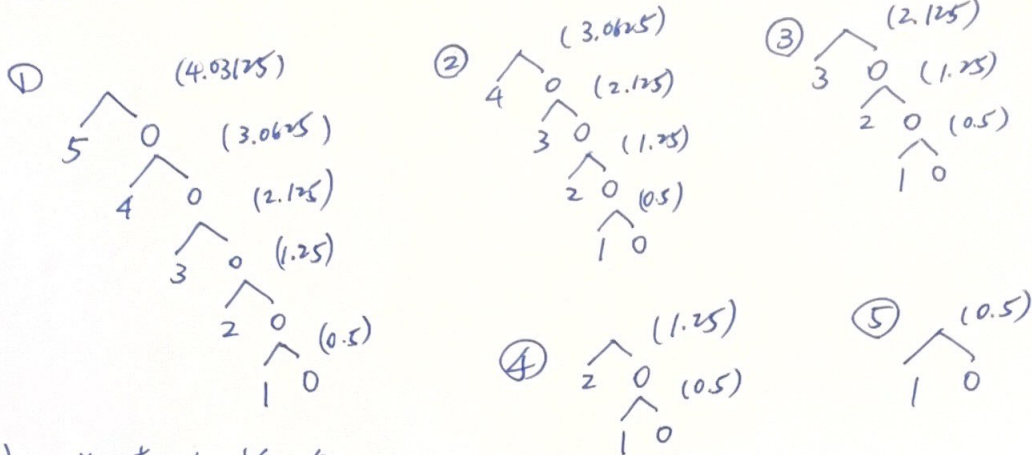 ①
(4.03125)
5 0 (3.0625)
4 0 (2.125)
3 0 (1.25)
2 0 (0.5)
1 0
② (3.0625)
4 0 (2.125)
3 0 (1.25)
2 0 (0.5)
1 0
③ (2.125)
3 0 (1.25)
2 0 (0.5)
1 0
④ (1.25)
2 0 (0.5)
1 0
⑤ (0.5)
1 0